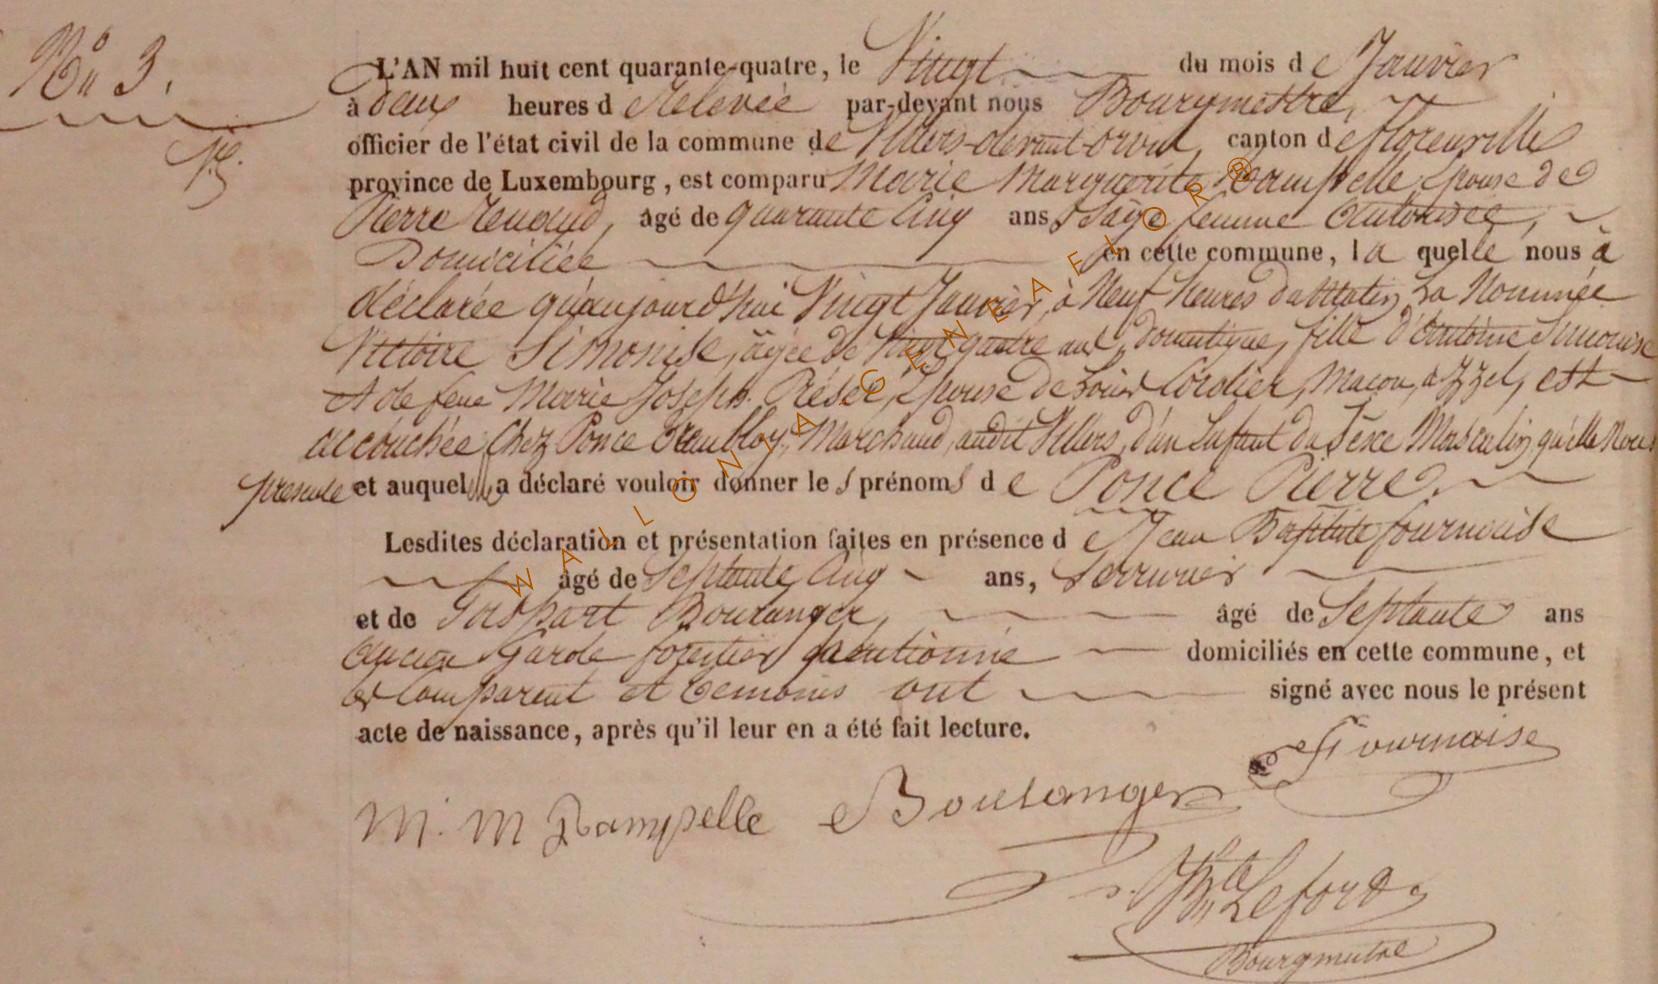 No 3.
L'AN mil huit cent quarante-quatre, le Vingt du mois de Janvier
à deux heures de Relevée par-devant nous Bourgmestre,
officier de l'état civil de la commune de Villers-devant-orval, canton de florenville
province de Luxembourg, est comparu Marie Marguerite Rampelle, Epouse de
Pierre renaud, âgé de quarante Cinq ans, Sage femme Autorisée,
Domiciliée en cette commune, la quelle nous à
déclarée qu'aujourd'hui Vingt Janvier, à Neuf heures du Matin, La Nommée
Victoire Simonise, âgée de Vingt quatre ans, domestique, fille d'Antoine Simonise
et de feue Marie Joseph Réser, Epouse de Louis Cordier, Macon, à Izel, est
accouchée Chez Ponce Trembloy, Marchand, audit Villers, d'un Enfant du Sexe Masculin, qu'elle Nous
presente et auquel a déclaré vouloir donner les prénoms de Ponce Pierre.
Lesdites déclaration et présentation faites en présence de Jean Baptiste fournaise
âgé de Septante Cinq ans, Serrurier
et de Gaspart Boulanger, âgé de Septante ans
Ancien Garde forestier domiciliés en cette commune, et
Comparent et temoins ont signé avec nous le présent
acte de naissance, après qu'il leur en a été fait lecture.
Fournaise
M. M Rampelle Boulanger
Bte Lefort
Bourgmestre
WALLONIA GENEAFLOR®